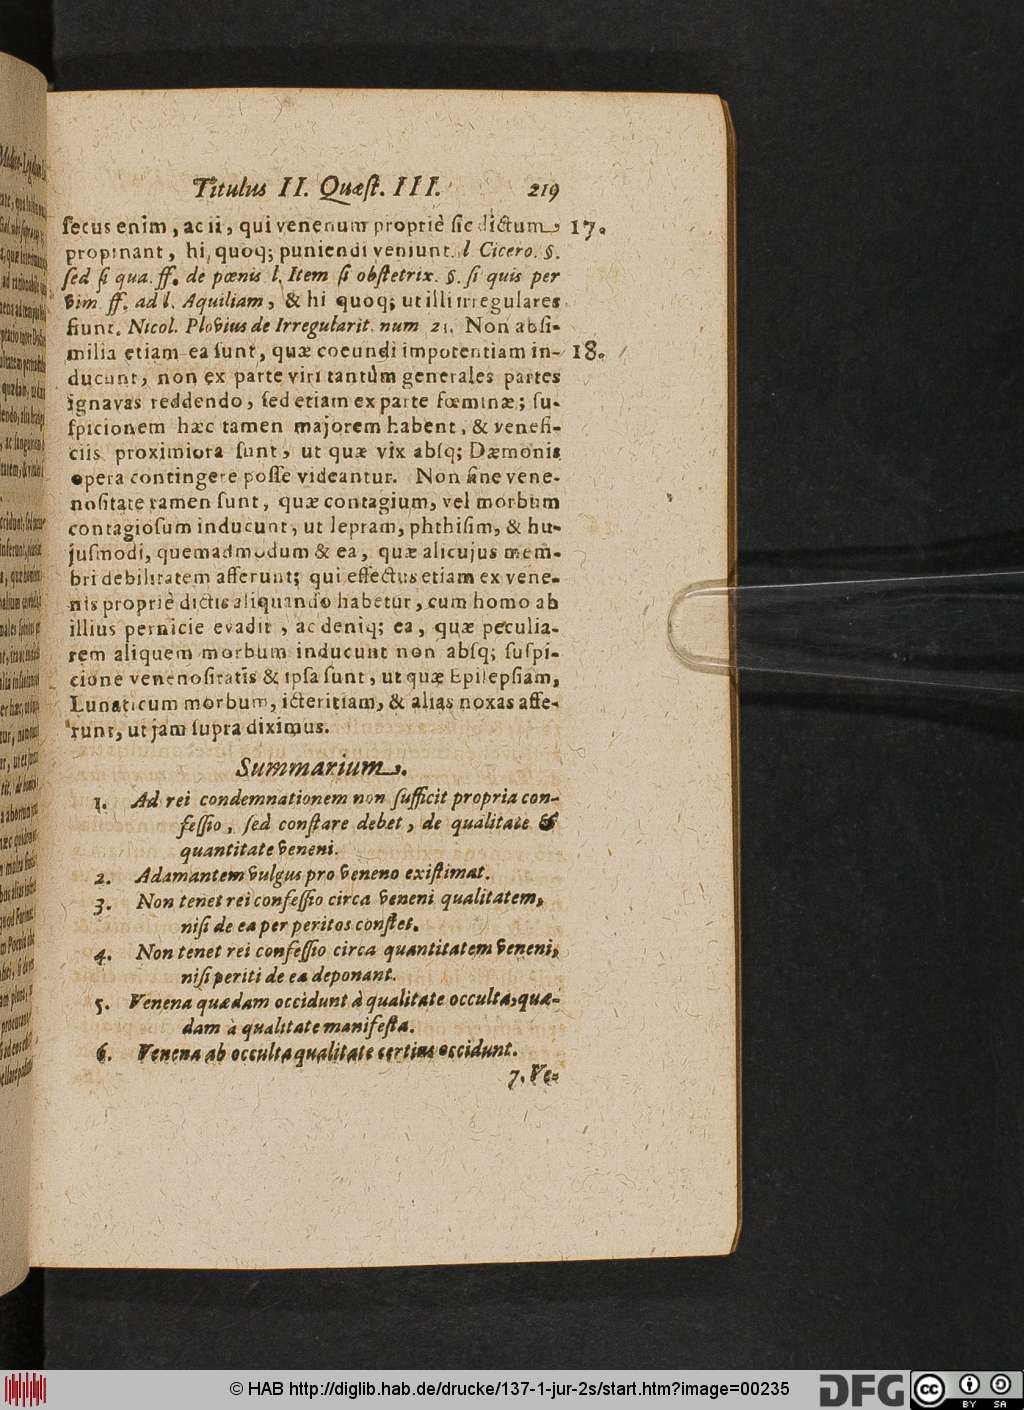 Titulus II. Quæſt. III. 219
ſecus enim, ac ii, qui venenum propriè ſic dictum, 17.
propinant, hi, quoq; puniendi veniunt. l Cicero. §.
ſed ſi qua. ff. de pœnis l. Item ſi obſtetrix. §. ſi quis per
vim ff. ad l. Aquiliam, & hi quoq; ut illi irregulares
fiunt. Nicol. Plovius de Irregularit. num 21. Non abſi-
milia etiam ea ſunt, quæ coeundi impotentiam in- 18.
ducunt, non ex parte viri tantùm generales partes
ignavas reddendo, ſed etiam ex parte fœminæ; ſu-
ſpicionem hæc tamen majorem habent, & venefi-
ciis proximiora ſunt, ut quæ vix abſq; Dæmonis
opera contingere poſſe videantur. Non ſine vene-
noſitate tamen ſunt, quæ contagium, vel morbum
contagioſum inducunt, ut lepram, phthiſim, & hu-
juſmodi, quemadmodum & ea, quæ alicujus mem-
bri debilitatem afferunt; qui effectus etiam ex vene-
nis propriè dictis aliquando habetur, cum homo ab
illius pernicie evadit, ac deniq; ea, quæ peculia-
rem aliquem morbum inducunt non abſq; ſuſpi-
cione venenoſitatis & ipſa ſunt, ut quæ Epilepſiam,
Lunaticum morbum, icteritiam, & alias noxas affe-
runt, ut jam ſupra diximus.
Summarium.
1. Ad rei condemnationem non ſufficit propria con-
feſſio, ſed conſtare debet, de qualitate &
quantitate veneni.
2. Adamantem vulgus pro veneno exiſtimat.
3. Non tenet rei confeſſio circa veneni qualitatem,
niſi de ea per peritos conſtet.
4. Non tenet rei confeſſio circa quantitatem veneni,
niſi periti de ea deponant.
5. Venena quædam occidunt à qualitate occulta, quæ-
dam à qualitate manifeſta.
6. Venena ab occulta qualitate certius occidunt.
7. Ve-
© HAB http://diglib.hab.de/drucke/137-1-jur-2s/start.htm?image=00235
DFG
cc BY SA